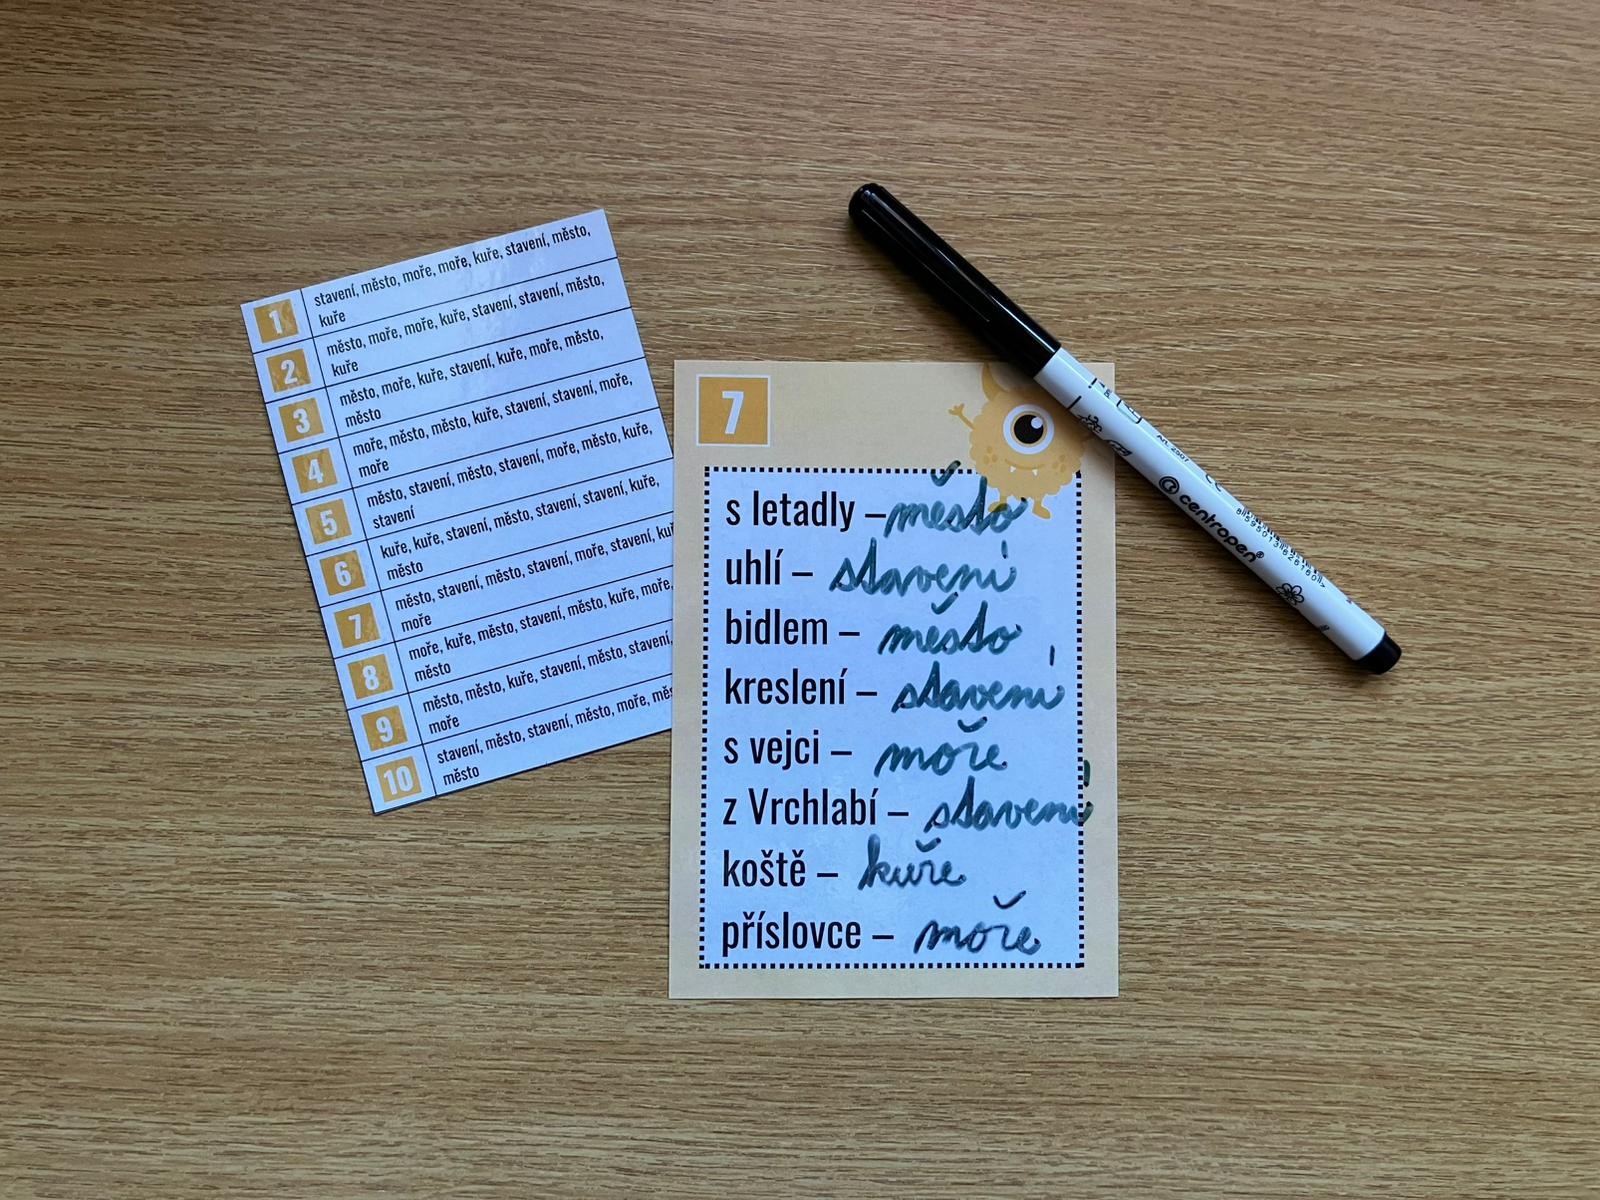 1 stavení, město, moře, moře, kuře, stavení, město,
kuře
2 město, moře, moře, kuře, stavení, stavení, město,
kuře
3 město, moře, kuře, stavení, kuře, moře, město,
město
4 moře, město, město, kuře, stavení, stavení, moře,
moře
5 město, stavení, město, stavení, moře, město, kuře,
stavení
6 kuře, kuře, stavení, město, stavení, stavení, kuře,
město
7 město, stavení, město, stavení, moře, stavení,
moře
8 moře, kuře, město, stavení, město, kuře, moře,
město
9 město, město, kuře, stavení, město, stavení,
moře
10 stavení, město, stavení, město, moře,
město
7
s letadly – město
uhlí – stavení
bidlem – město
kreslení – stavení
s vejci – moře
z Vrchlabí – stavení
koště – kuře
příslovce – moře
centropen®